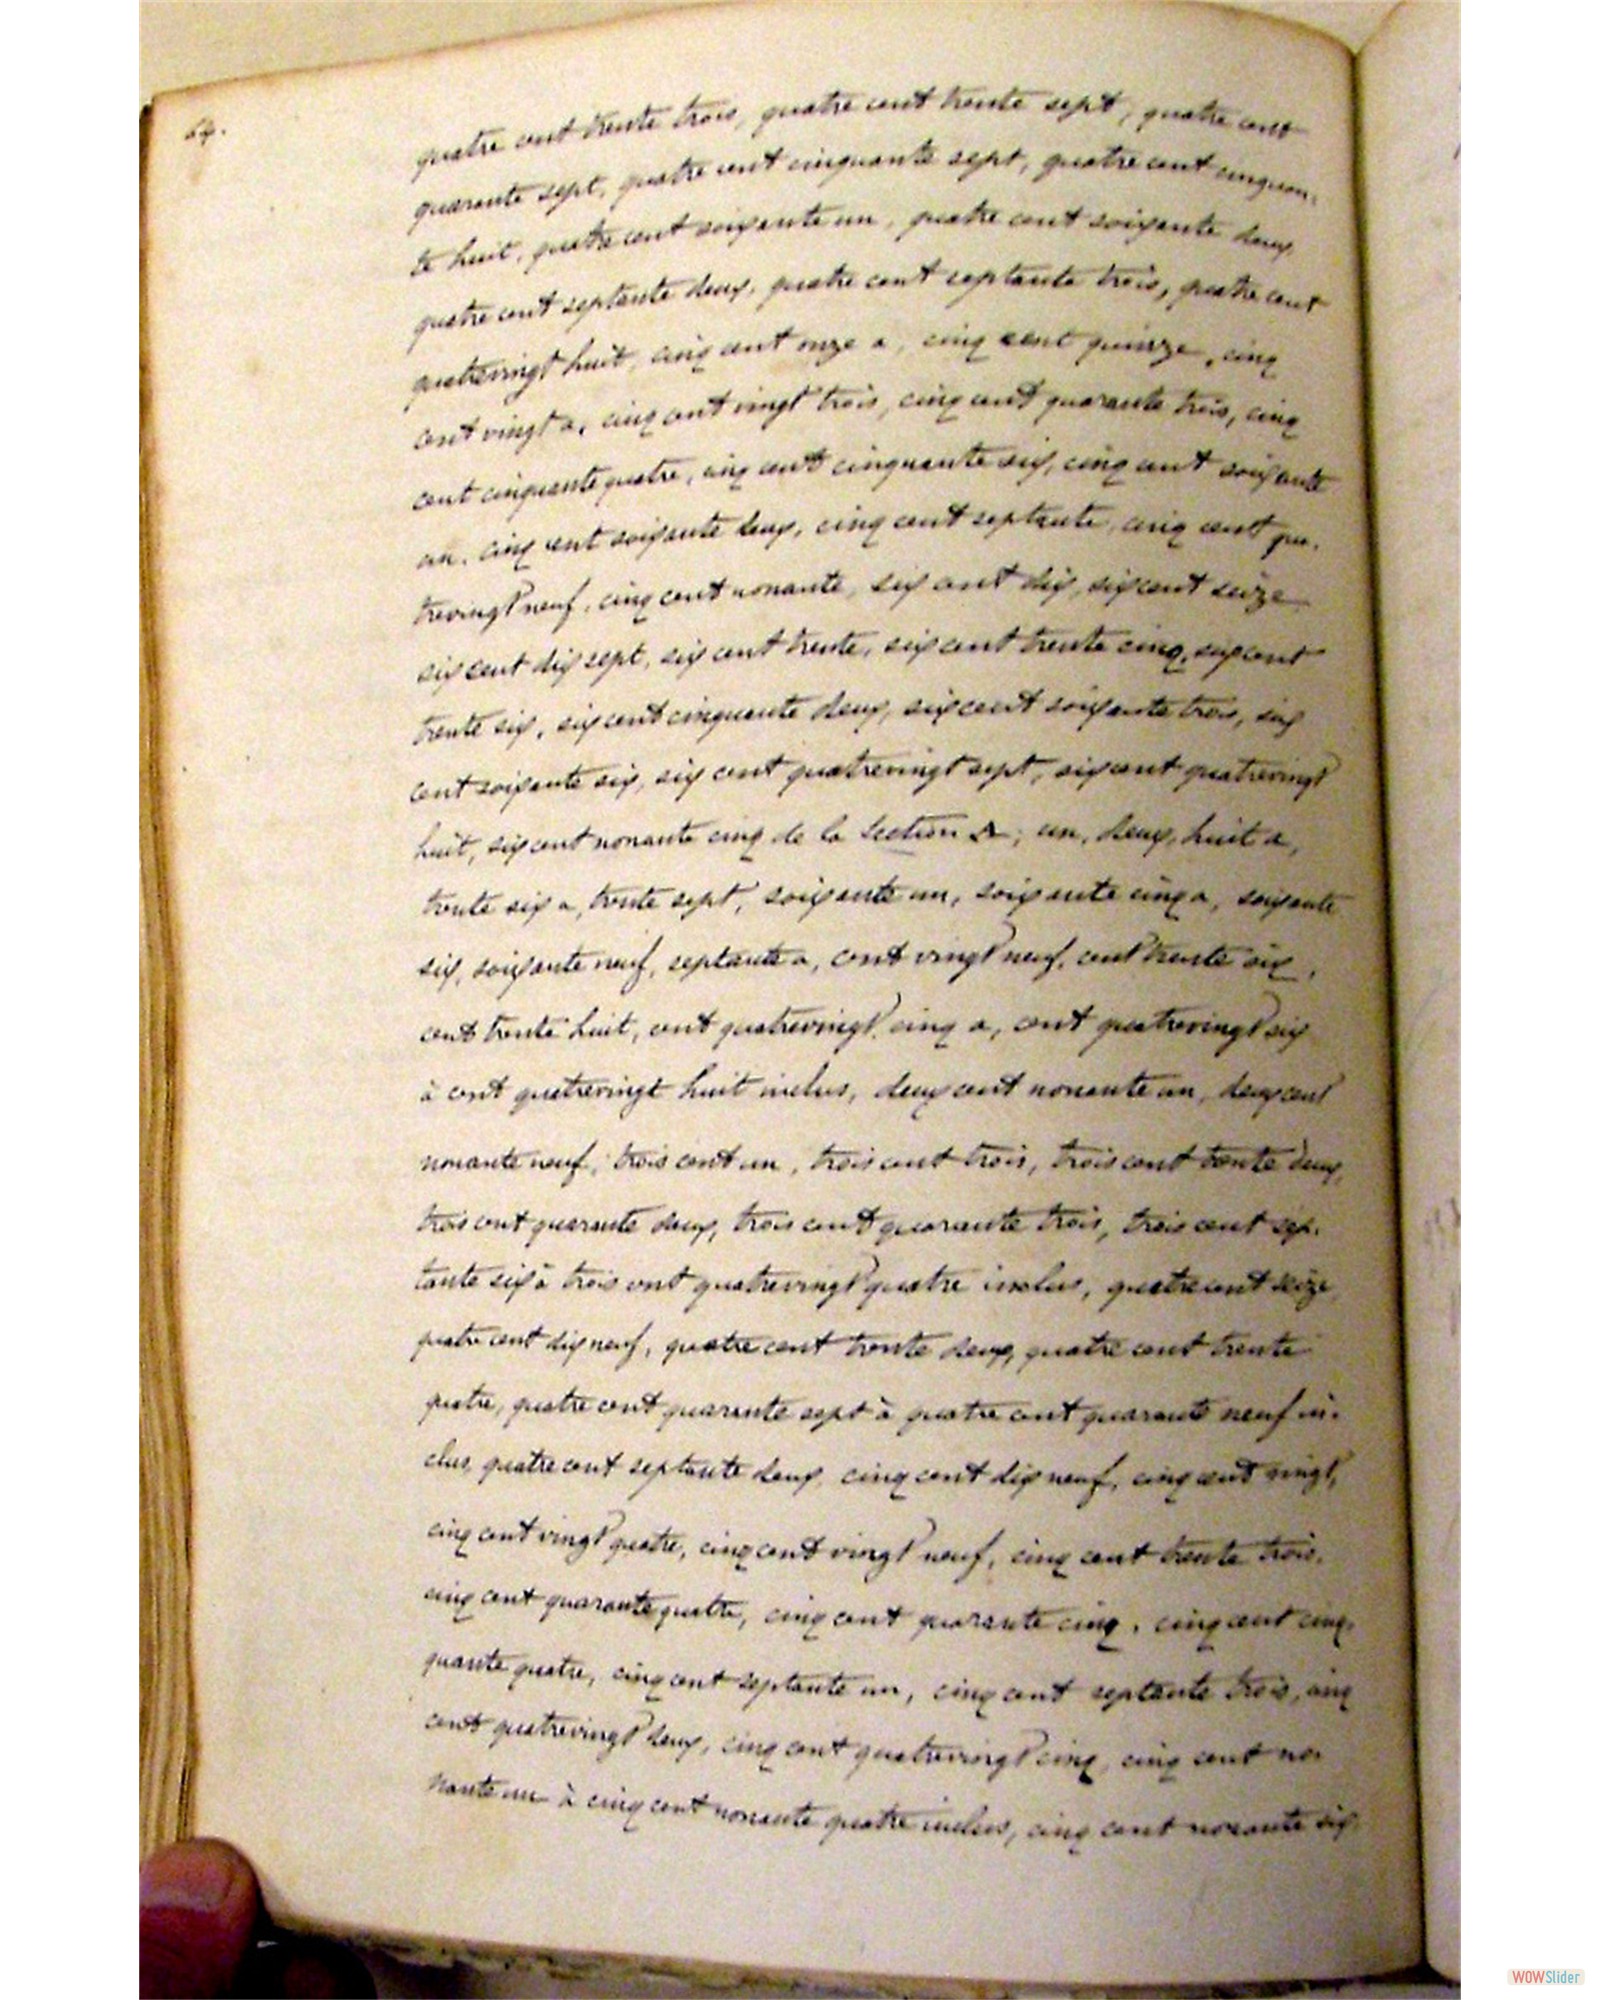 64.
quatre cent trente trois, quatre cent trente sept, quatre cent
quarante sept, quatre cent cinquante sept, quatre cent cinquan,
te huit, quatre cent soixante un, quatre cent soixante deux,
quatre cent septante deux, quatre cent septante trois, quatre cent
quatrevingt huit, cinq cent onze a, cinq cent quinze, cinq
cent vingt a, cinq cent vingt trois, cinq cent quarante trois, cinq
cent cinquante quatre, cinq cent cinquante six, cinq cent soixante
un, cinq cent soixante deux, cinq cent septante, cinq cent qua.
trevingt neuf, cinq cent nonante, six cent dix, six cent seize
six cent dix sept, six cent trente, six cent trente cinq, six cent
trente six, six cent cinquante deux, six cent soixante trois, six
cent soixante six, six cent quatrevingt sept, six cent quatrevingt
huit, six cent nonante cinq de la Section A; un, deux, huit a,
trente six a, trente sept, soixante un, soixante cinq a, soixante
six, soixante neuf, septante a, cent vingt neuf, cent trente six,
cent trente huit, cent quatrevingt cinq a, cent quatrevingt six
à cent quatrevingt huit inclus, deux cent nonante un, deux cent
nonante neuf, trois cent un, trois cent trois, trois cent trente deux,
trois cent quarante deux, trois cent quarante trois, trois cent sep.
tante six à trois cent quatrevingt quatre inclus, quatre cent seize
quatre cent dix neuf, quatre cent trente deux, quatre cent trente
quatre, quatre cent quarante sept à quatre cent quarante neuf in.
clus, quatre cent septante deux, cinq cent dix neuf, cinq cent vingt,
cinq cent vingt quatre, cinq cent vingt neuf, cinq cent trente trois,
cinq cent quarante quatre, cinq cent quarante cinq, cinq cent cinq.
quante quatre, cinq cent septante un, cinq cent septante trois, cinq
cent quatrevingt deux, cinq cent quatrevingt cinq, cinq cent no.
nante un à cinq cent nonante quatre inclus, cinq cent nonante six
WOWSlider